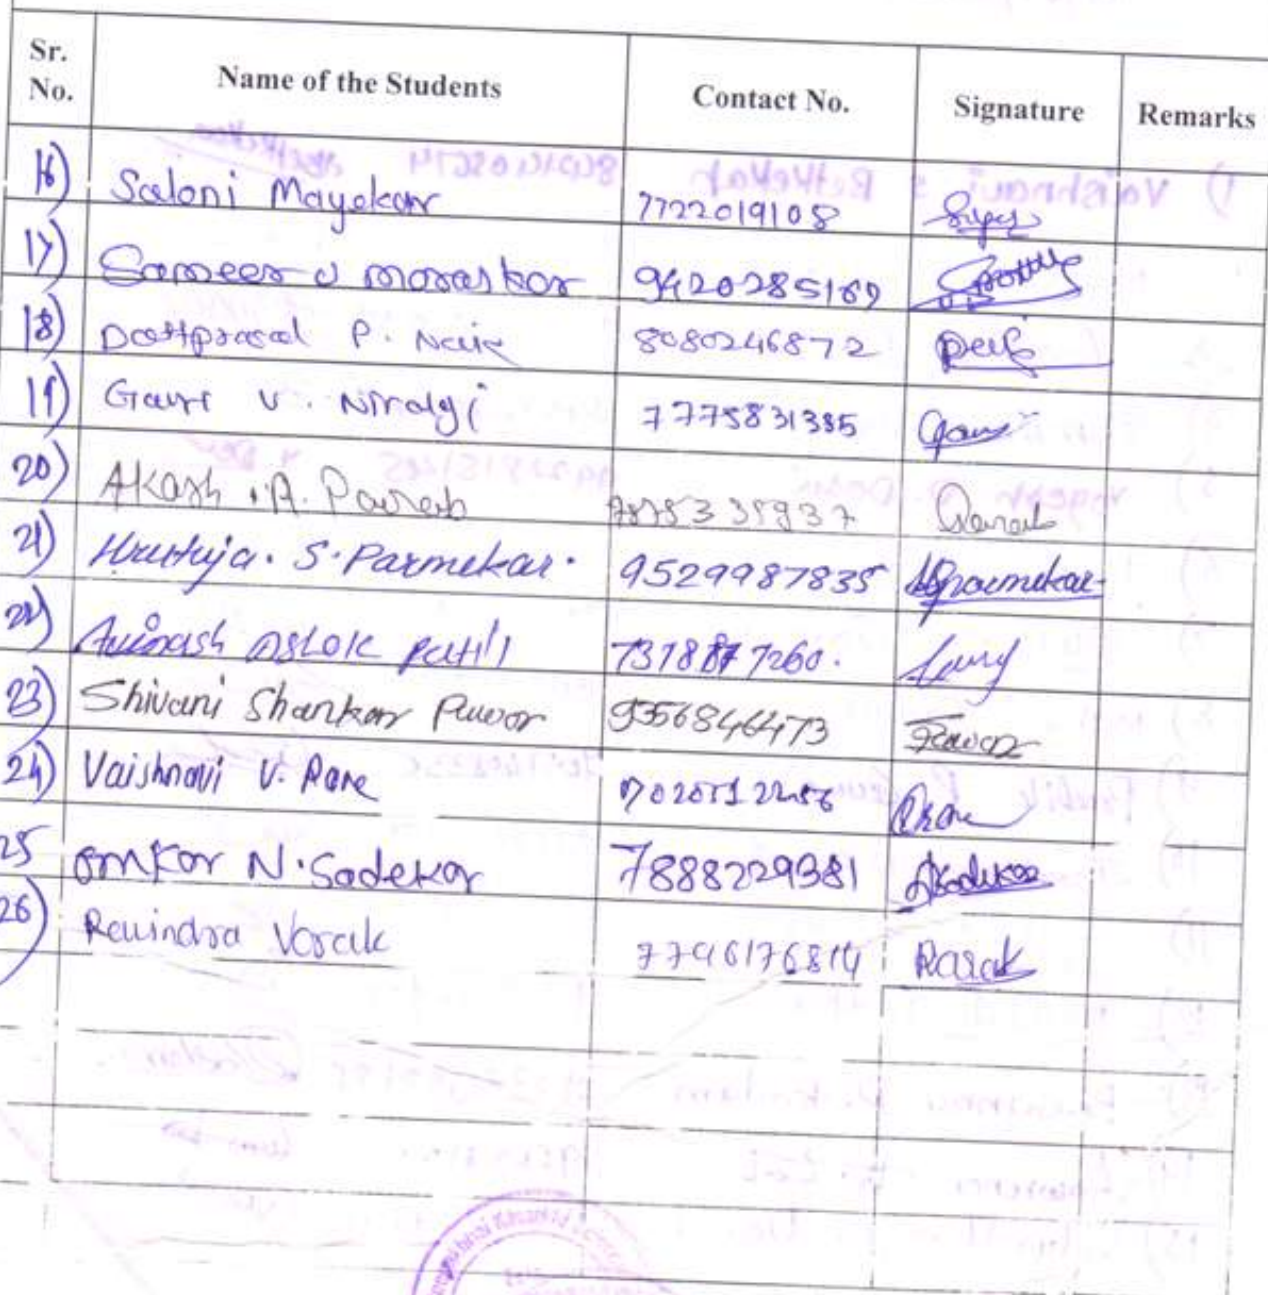 Sr. No. Name of the Students Contact No. Signature Remarks
16) Saloni Mayekar 7722019108
17) Sameer v moraskar 9420285169
18) Dattprasad P. Naik 8080246872
19) Gauri V. Niralgi 7775831385 Gauri
20) Akash .A. Parab
21) Hrutuja. S. Parmekar. 9529987835 HSparmekar
22) Avinash Ashok Patil
23) Shivani Shankar Pawar 9356846473 Pawar
24) Vaishnavi V. Rane Rane
25 Omkar N. Sadekar 7888229381 Sadekar
26) Ravindra Varak 7796176814 Rarak